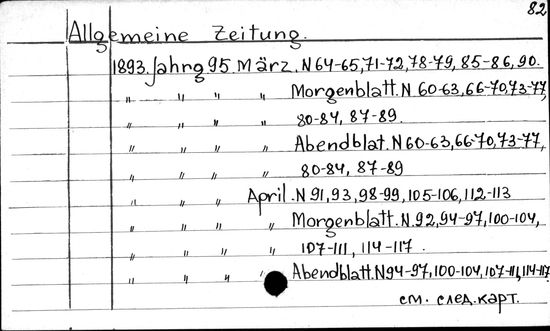 82
Allgemeine Zeitung.
1893. Jahrg 95. März. N 64-65, 71-72, 78-79, 85-86, 90.
" " " " Morgenblatt. N 60-63, 66-70, 73-77,
" " " " 80-84, 87-89.
" " " " Abendblat. N 60-63, 66-70, 73-77,
" " " " 80-84, 87-89
" " " April. N 91, 93, 98-99, 105-106, 112-113
" " " " Morgenblatt. N 92, 94-97, 100-104,
" " " " 107-111, 114-117.
" " " " Abendblatt. N 94-97, 100-104, 107-111, 114-117
см. след. карт.